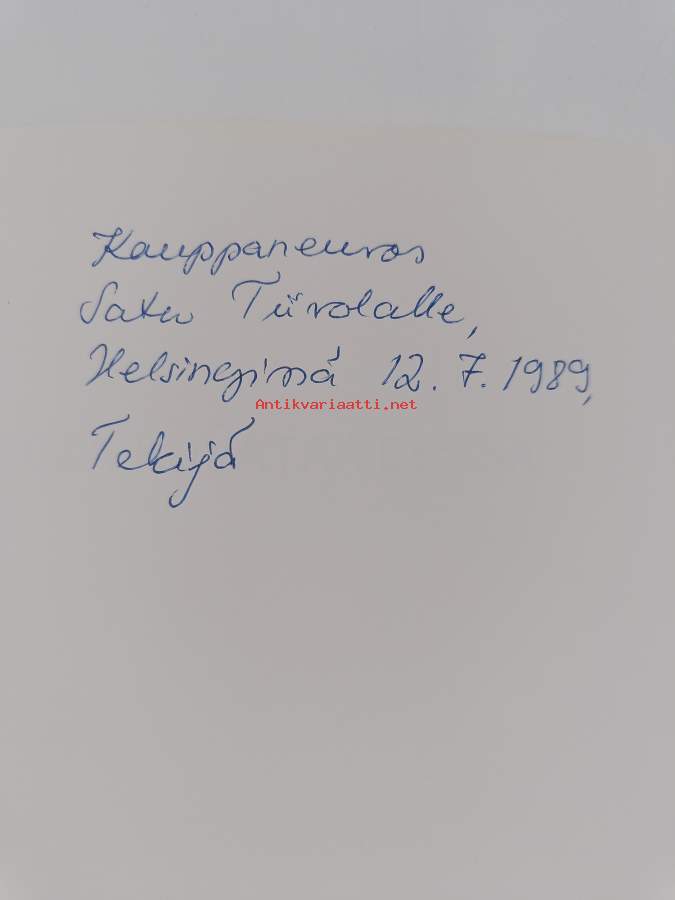 Kauppaneuvos
Satu Tiivolalle,
Helsingissä 12.7.1989,
Antikvariaatti.net
Tekijä